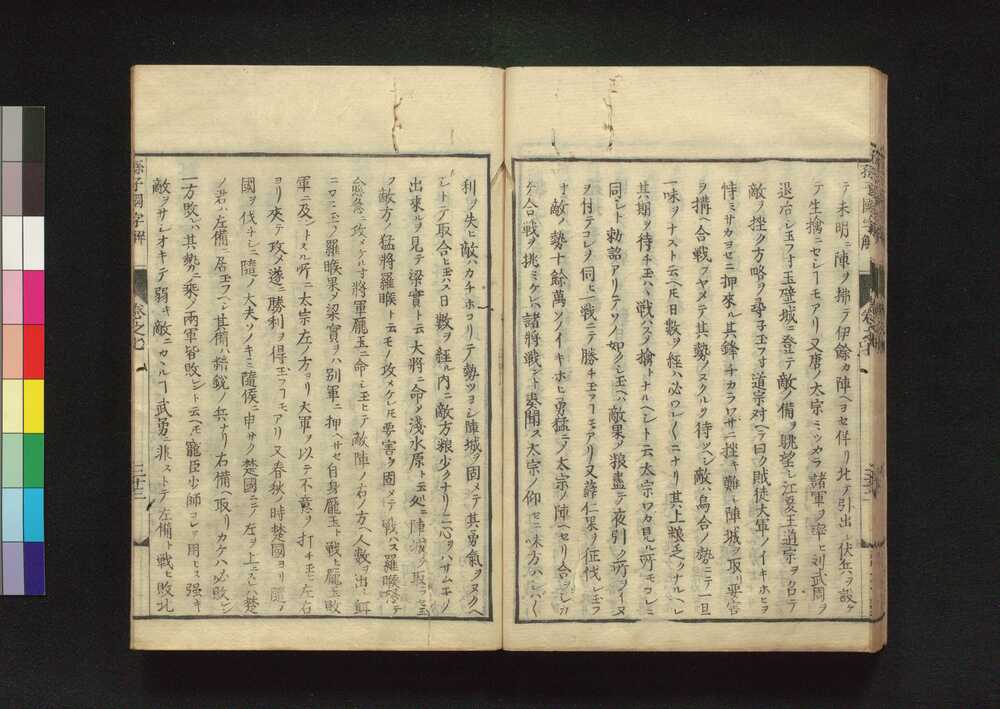 テ未明ニ陣ヲ拂テ伊餘カ陣ヘヨセ佯リ北ノ引出シ伏兵ヲ設ケ
テ生擒ニセシーモアリ又唐ノ太宗ミツカラ諸軍ヲ率ヒ劉武周ヲ
退治シ玉フ寸玉壁城ニ登テ敵ノ備ヲ眺望シ江夏王道宗ヲ召テ
敵ヲ挫ク方略ヲ尋子玉フ寸道宗対ヘテ曰ク賊徒大軍ノイキホヒヲ
恃ミサカヨセニ押來ル其鋒チカラワザニ挫キ難シ陣城ヲ取リ要害
ヲ搆ヘ合戰ヲヤメテ其勢ノスクルヲ待ツヘシ敵ハ烏合ノ勢ニテ一旦
一味ヲナスト云ヘ𪜈日數ヲ經ハ必ワレ〱ニナリ其上粮乏クナルヘシ
其期ヲ待チ玉ハヽ戰ハスノ擒トナルヘシト云太宗ワカ見ル所モコレニ
同シト勅諚アリテソノ如クシ玉ヘハ敵果ノ粮盡テ夜引ノ所ヲイヌ
ヲ付テコレヲ伺ヒ一戰ニテ勝チ玉フーモアリ又薛仁杲ヲ征伐シ玉フ
寸敵ノ勢十餘萬ソノイキホヒ勇猛ニノ太宗ノ陣ヘセリ合ヲシカ
ケ合戰ヲ挑ミケレハ諸將戰ント望聞ス太宗ノ仰セニ味方ハシハ〱
利ヲ失ヒ敵ハカチホコリテ勢ツヨシ陣城ヲ固メテ其勇氣ヲヌクヘ
シトテ取合ヒ玉ハス日數ヲ經ル内ニ敵方粮少クナリ二心ヲハサムモノ
出來ルヲ見テ梁實ト云大將ニ命メ淺水原ト云処ニ陣城ヲ取ラセ玉
フ敵方ノ猛將羅睺ト云モノ攻メケレ𪜈要害ヲ固メテ戰ハス羅睺怒テ
急ニ攻メケル寸將軍龎玉ニ命シ玉ヒテ敵陣ノ右ノ方ヘ人數ヲ出シ餌
ニワニ玉ヘハ羅睺果メ梁實ヲハ別軍ニ押ヘサセ自身龎玉ト戰ヒ龎玉敗
軍ニ及ントスル所ニ太宗左ノ方ヨリ大軍ヲ以テ不意ヲ打チ玉ヒ左右
ヨリ夾テ攻メ遂ニ勝利ヲ得玉フーモアリ又春秋ノ時楚國ヨリ隨ノ
國ヲ伐チシニ隨ノ大夫ソノキミ隨侯ニ申サク楚國ニテハ左ヲ上ニスレハ楚
ノ君ハ左備ニ居玉フヘシ其備ハ精鋭ノ兵ナリ右備ヘ取リカケハ必敗ン
一方敗レハ其勢ニ乘ノ兩軍皆敗ント云ヘ𪜈寵臣少師コレヲ用ヒス强キ
敵ヲサシオキテ弱キ敵ニカヽルー武勇ニ非ストテ左備ト戰ヒ敗北
孫子國字解
卷之七
三十三